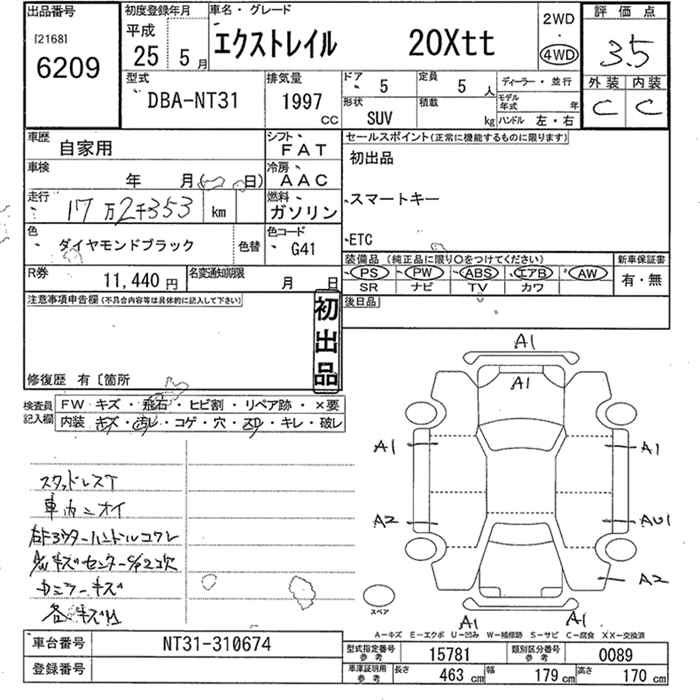 出品番号
[2168]
6209
初度登録年月
平成
25 5 月
車名・グレード
エクストレイル 20Xtt
2WD
・
4WD
評価点
3.5
外装 内装
C C
型式
DBA-NT31
排気量
1997
CC
ドア 5
定員 5 人
形状 SUV
積載 kg
ディーラー・並行
モデル年式 年
ハンドル 左・右
車歴
自家用
シフト
FAT
車検
年 月( 日)
冷房
AAC
走行
17万2千353 km
燃料
ガソリン
色
ダイヤモンドブラック
色替
色コード
G41
R券
11,440 円
名変通知期限
月 日
セールスポイント(正常に機能するものに限ります)
初出品
スマートキー
ETC
装備品(純正品に限り○をつけてください)
PS PW ABS エアB AW
SR ナビ TV カワ
新車保証書
有・無
後日品
注意事項申告欄(不具合内容等は具体的に記入して下さい)
初出品
修復歴 有〔箇所
検査員記入欄
FW キズ・飛石・ヒビ割・リペア跡・×要
内装 キズ・汚レ・コゲ・穴・スレ・キレ・破レ
スタッドレスT
車内ニオイ
A1
A1
A1
A1
A2
AU1
A2
A1
A1
スペア
A-キズ E-エクボ U-凹み W-補修跡 S-サビ C-腐食 XX-交換済
車台番号
NT31-310674
登録番号
型式指定番号
参考
15781
類別区分番号
参考
0089
車庫証明用
参考
長さ 463 cm
幅 179 cm
高さ 170 cm